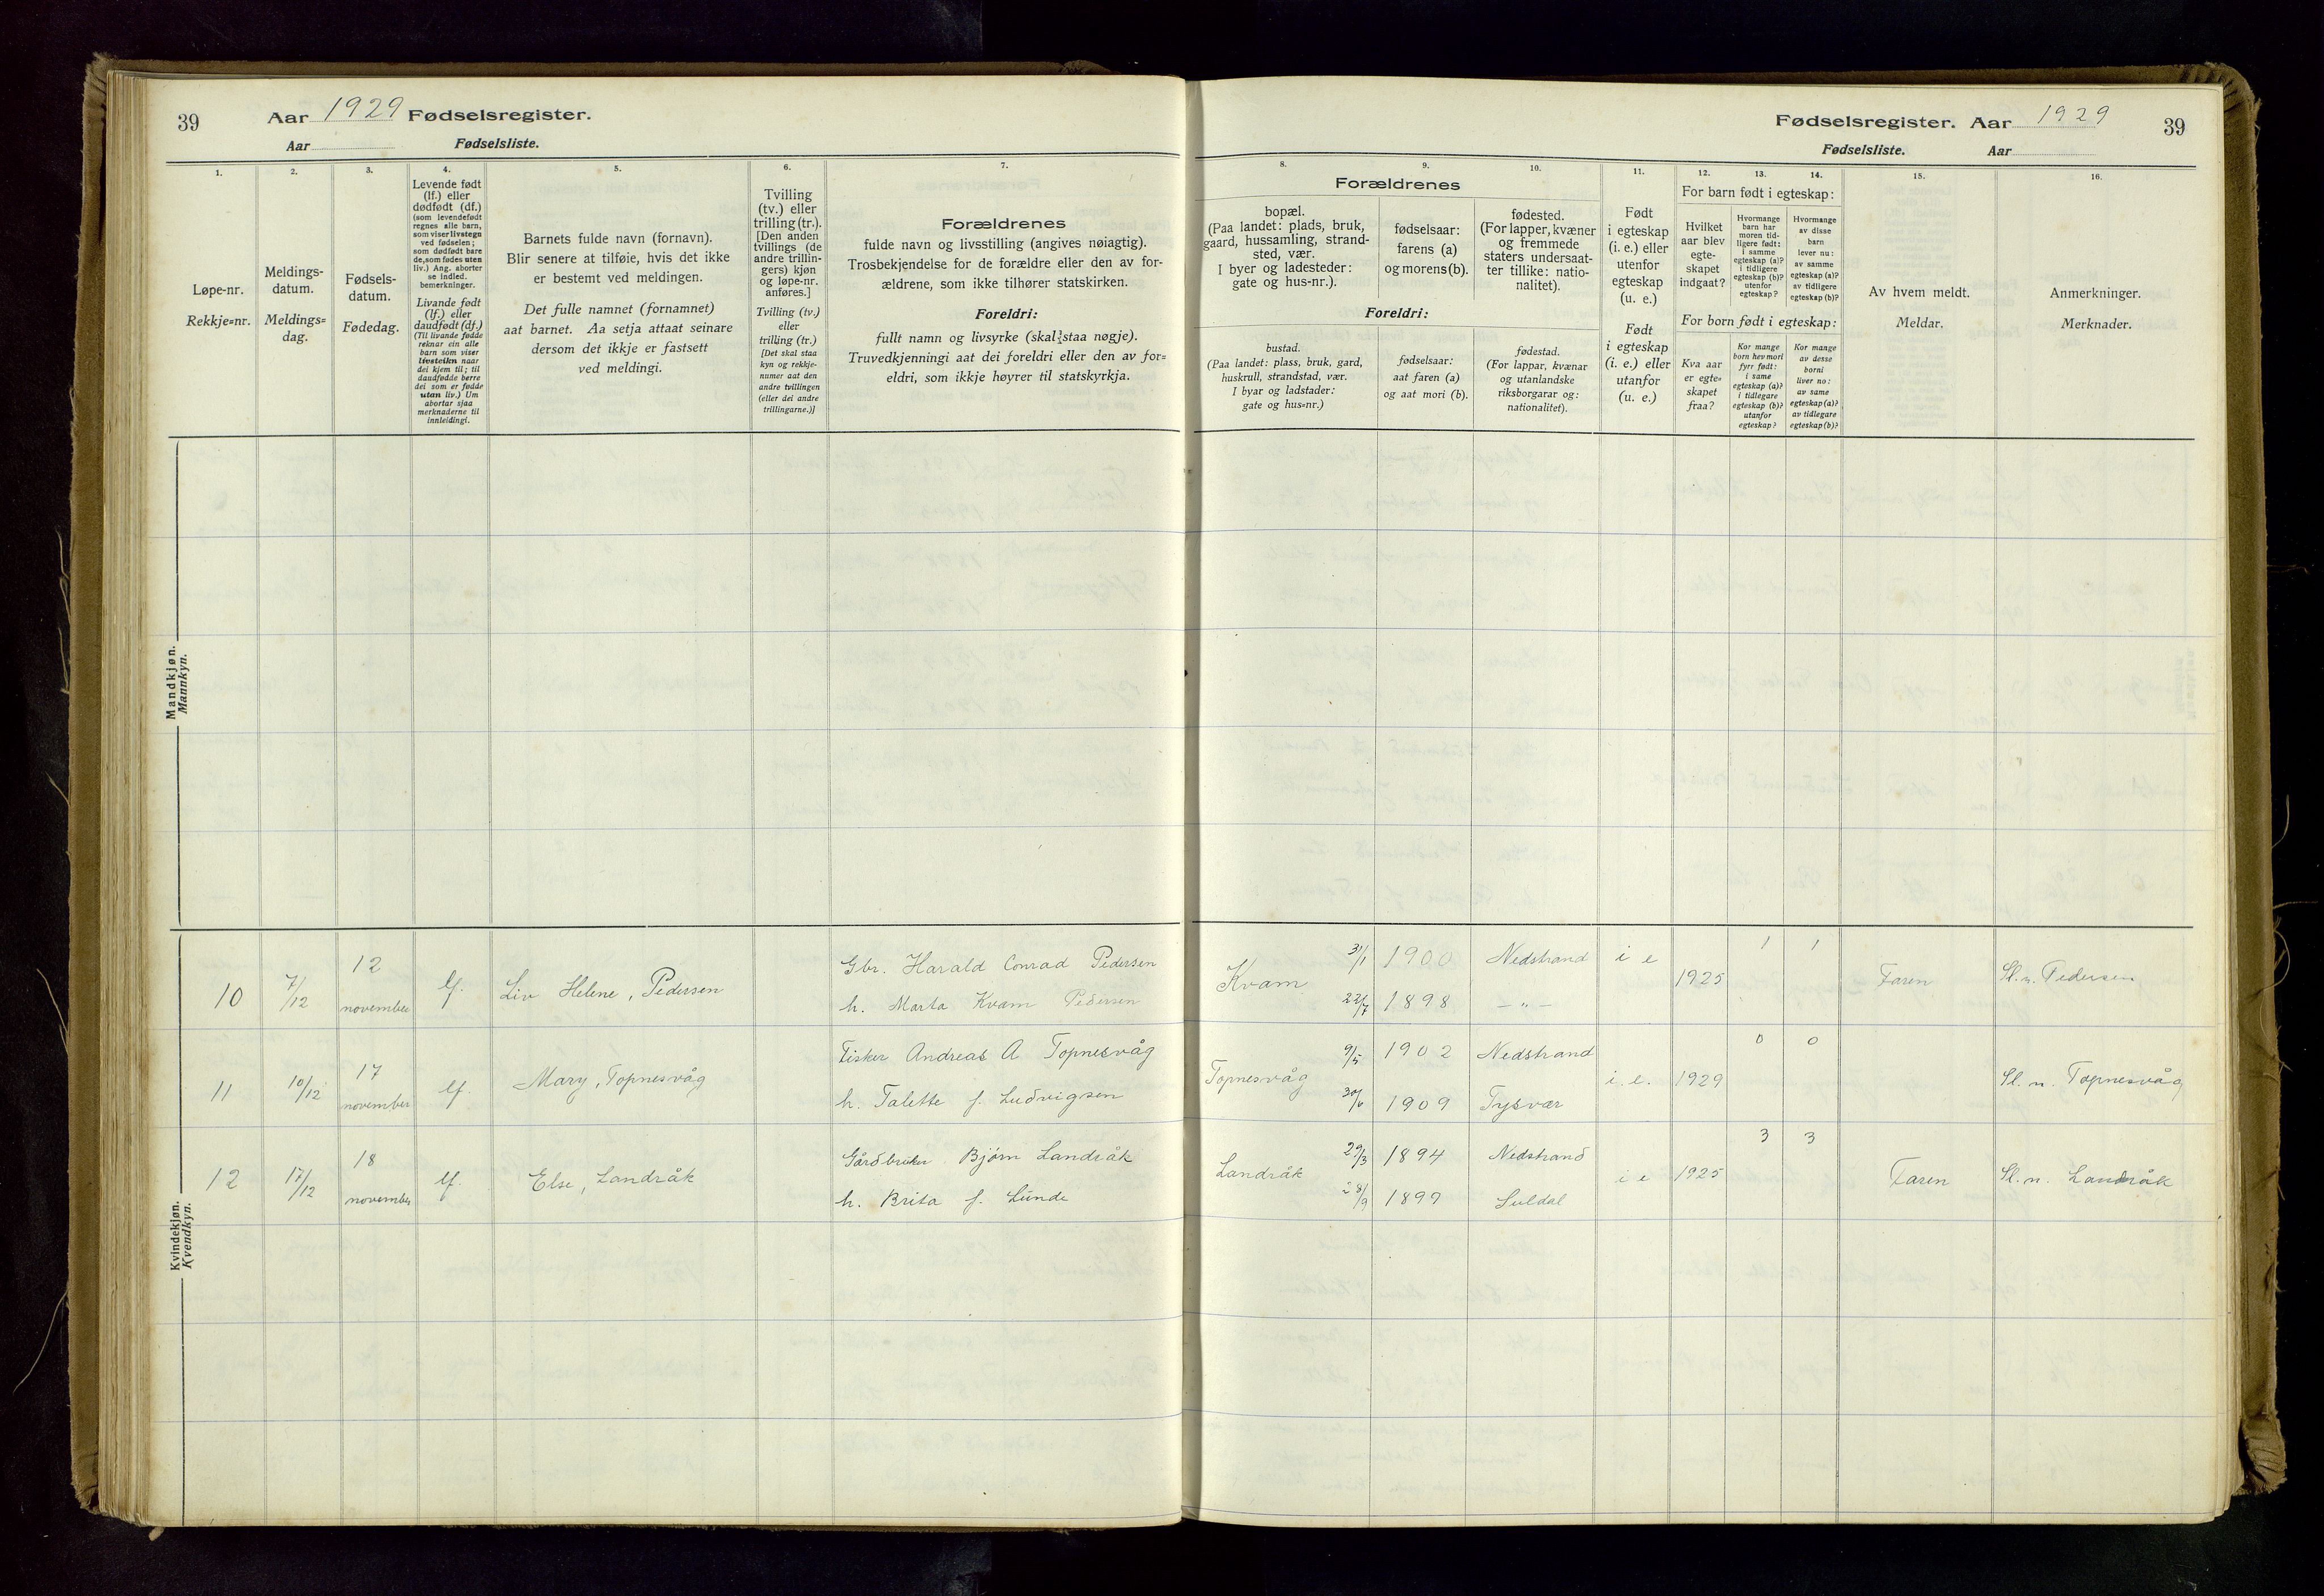 39
Aar 1929 Fødselsregister.
Aar Fødselsliste.
1.
Løpe-nr.
Rekkje=nr.
2.
Meldings-
datum.
Meldings=
dag.
3.
Fødsels-
datum.
Fødedag.
4.
Levende født
(lf.) eller
dødfødt (df.)
(som levendefødt
regnes alle barn,
som viser livstegn
ved fødselen;
som dødfødt bare
de, som fødes uten
liv.) Ang. aborter
se indled.
bemerkninger.
Livande født
(lf.) eller
daudfødt (df.)
(Til livande fødde
reknar ein alle
barn som viser
livsteikn naar
dei kjem til; til
daudfødde berre
dei som er fødde
utan liv.) Um
abortar sjaa
merknaderne til
innleidingi.
5.
Barnets fulde navn (fornavn).
Blir senere at tilføie, hvis det ikke
er bestemt ved meldingen.
Det fulle namnet (fornamnet)
aat barnet. Aa setja attaat seinare
dersom det ikkje er fastsett
ved meldingi.
6.
Tvilling
(tv.) eller
trilling (tr.).
[Den anden
tvillings (de
andre trillin-
gers) kjøn
og løpe-nr.
anføres.]
Tvilling (tv.)
eller
trilling (tr.)
[Det skal staa
kyn og rekkje-
numer aat den
andre tvillingen
(eller dei andre
trillingarne.)]
7.
Forældrenes
fulde navn og livsstilling (angives nøiagtig).
Trosbekjendelse for de forældre eller den av for-
ældrene, som ikke tilhører statskirken.
Foreldri:
fullt namn og livsyrke (skal staa nøgje).
Truvedkjenningi aat dei foreldri eller den av for=
eldri, som ikkje høyrer til statskyrkja.
Mandkjøn.
Mannkyn.
Kvindekjøn.
Kvendkyn.
Fødselsregister. Aar 1929
39
Fødselsliste. Aar
8.
9.
10.
Forældrenes
bopæl.
(Paa landet: plads, bruk,
gaard, hussamling, strand-
sted, vær.
I byer og ladesteder:
gate og hus-nr.).
fødselsaar:
farens (a)
og morens (b).
fødested.
(For lapper, kvæner
og fremmede
staters undersaat-
ter tillike: natio-
nalitet).
Foreldri:
bustad.
(Paa landet: plass, bruk, gard,
huskrull, strandstad, vær.
I byar og ladstader:
gate og hus=nr.)
fødselsaar:
aat faren (a)
og aat mori (b).
fødestad.
(For lappar, kvænar
og utanlandske
riksborgarar og:
nationalitet).
11.
Født
i egteskap
(i. e.) eller
utenfor
egteskap
(u. e.)
Født
i egteskap
(i. e.) eller
utanfor
(u. e.)
12.
13.
14.
For barn født i egteskap:
Hvilket
aar blev
egte-
skapet
indgaat?
Hvormange
barn har
moren tid-
ligere født:
i samme
egteskap (a)?
i tidligere
egteskap (b)?
utenfor
egteskap?
Hvormange
av disse
barn
lever nu:
av samme
egteskap (a)?
av tidligere
egteskap (b)?
For born født i egteskap:
Kva aar
er egte=
skapet
fraa?
Kor mange
born hev mori
fyrr født:
i same
egteskap (a)?
i tidlegare
egteskap (b)?
utanfor
egteskap?
Kor mange
av desse
borni
liver no:
av same
egteskap (a)?
av tidlegare
egteskap (b)?
15.
Av hvem meldt.
Meldar.
16.
Anmerkninger.
Merknader.
10 7/12 12 november lf. Liv Helene, Pedersen
Gbr. Harald Conrad Pedersen
h. Marta Kvam Pedersen
Kvam
31/1 1900 Nedstrand
22/7 1898 — „ —
i e 1925 1 1 Faren Sl.n. Pedersen
11 10/12 17 november lf. Mary, Topnesvåg
Fisker Andreas A Topnesvåg
h. Talette f. Ludvigsen
Topnesvåg
9/5 1902 Nedstrand
30/6 1909 Tysvær
i. e. 1929 0 0 Sl. n. Topnesvåg
12 17/12 18 november lf. Else, Landråk
Gårdbruker Bjørn Landråk
h. Brita f. Lunde
Landråk
29/3 1894 Nedstrand
28/9 1899 Suldal
i e 1925 3 3 Faren Sl. n. Landråk